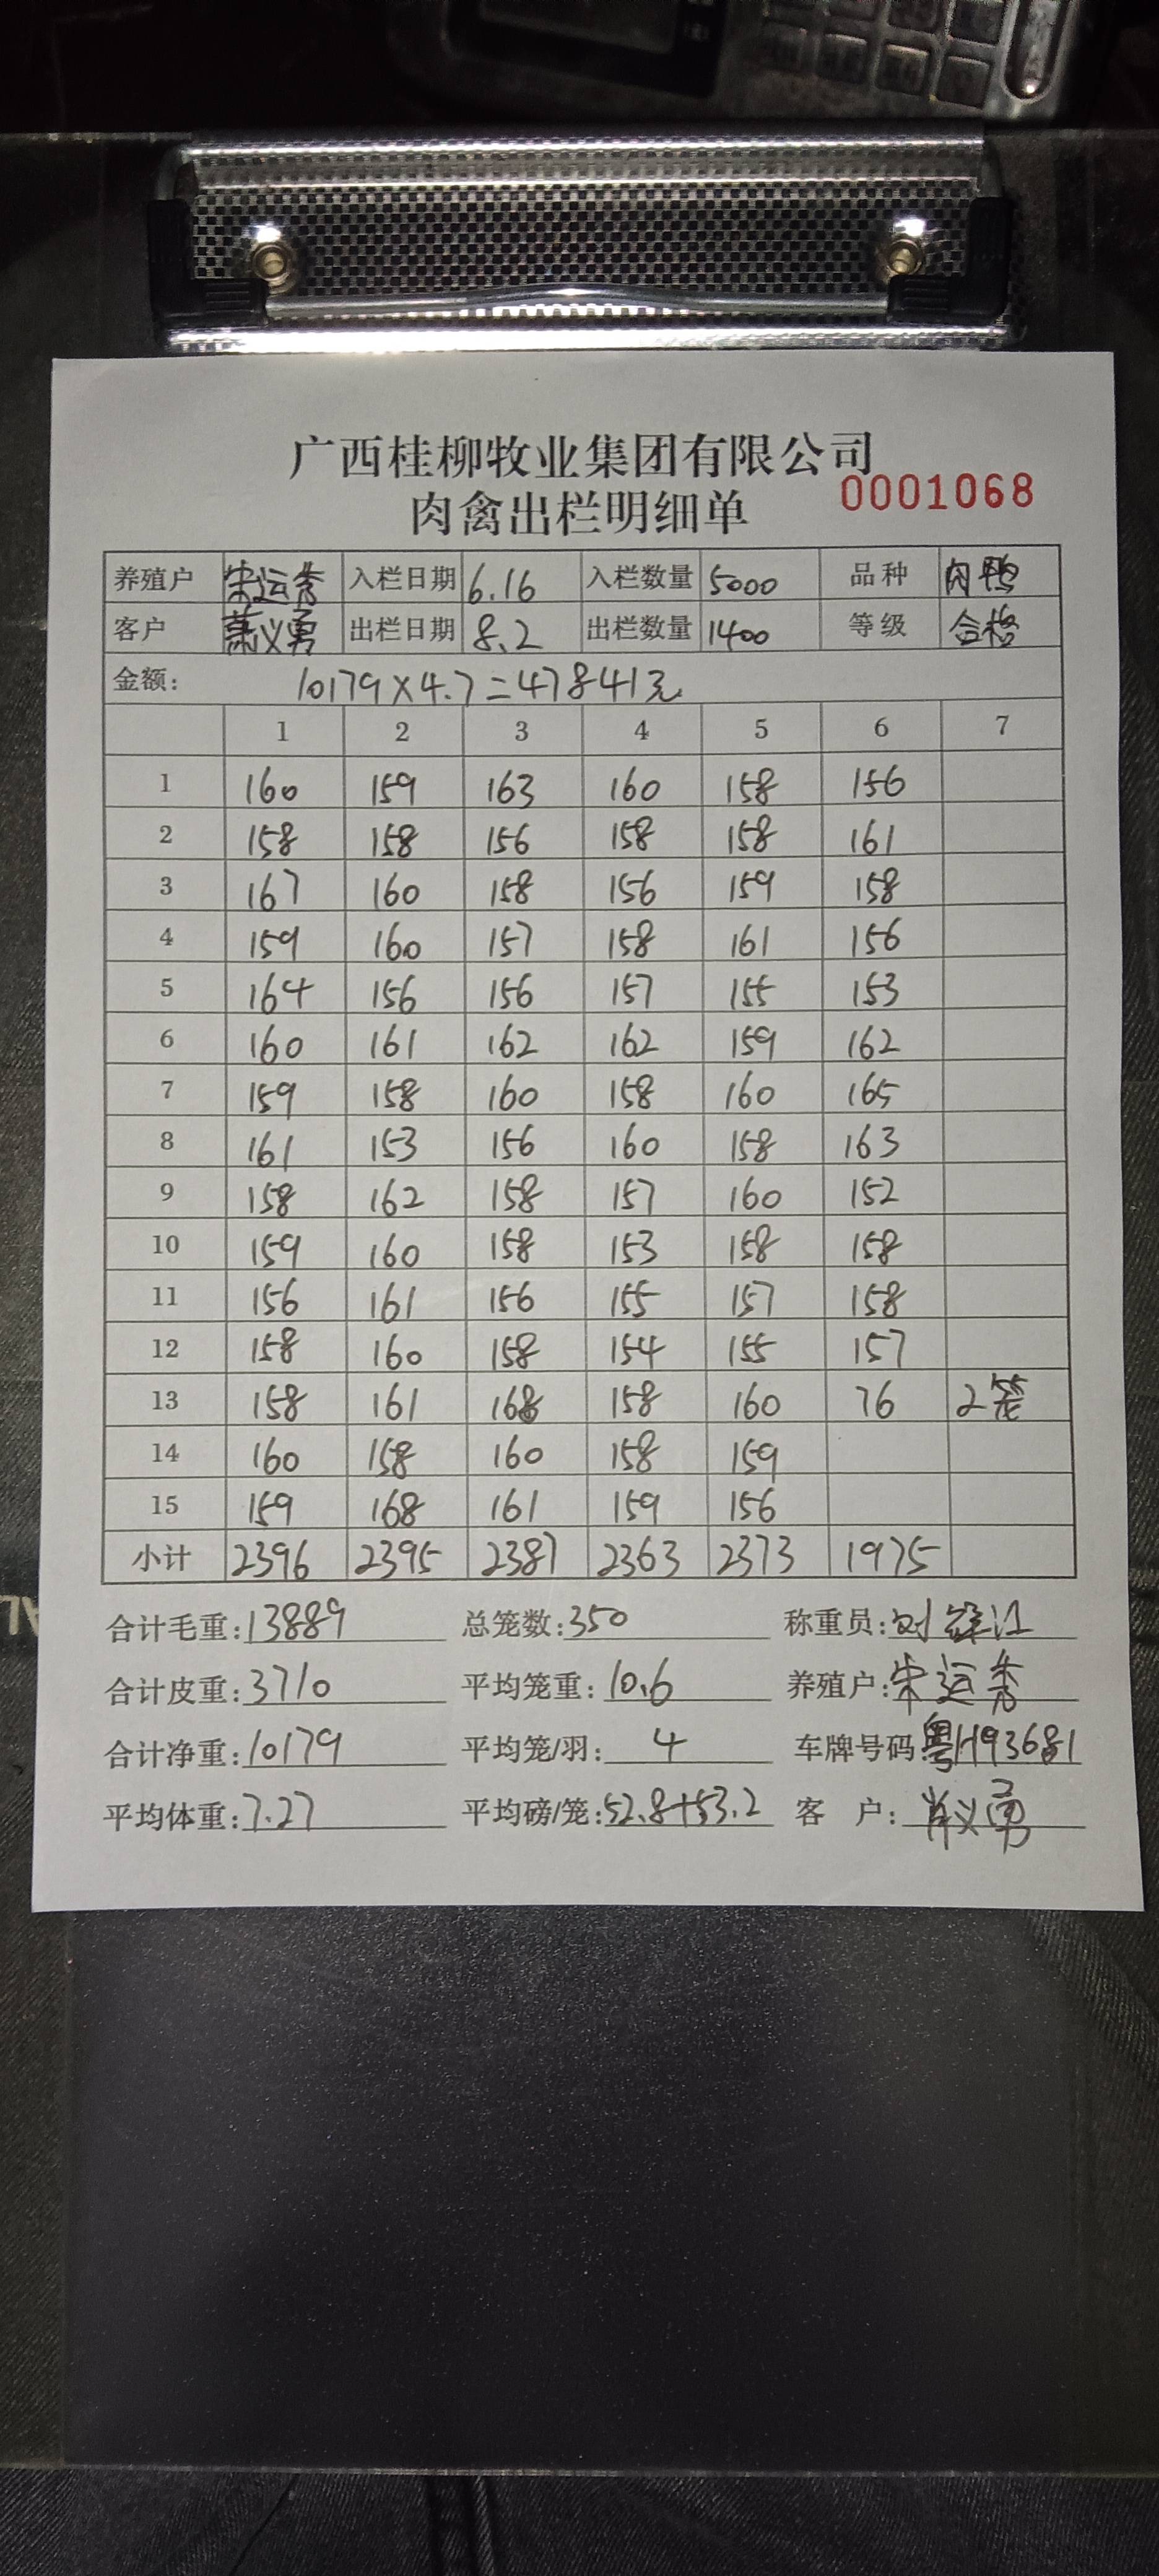 广西桂柳牧业集团有限公司
肉禽出栏明细单 0001068
养殖户 宋运秀 入栏日期 6.16 入栏数量 5000 品种 肉鸭
客户 萧义勇 出栏日期 8.2 出栏数量 1400 等级 合格
金额: 10179×4.7=47841元
1 2 3 4 5 6 7
1 160 159 163 160 158 156
2 158 158 156 158 158 161
3 167 160 158 156 159 158
4 159 160 157 158 161 156
5 164 156 156 157 155 153
6 160 161 162 162 159 162
7 159 158 160 158 160 165
8 161 153 156 160 158 163
9 158 162 158 157 160 152
10 159 160 158 153 158 158
11 156 161 156 155 157 158
12 158 160 158 154 155 157
13 158 161 168 158 160 76 2笼
14 160 158 160 158 159
15 159 168 161 159 156
小计 2396 2395 2387 2363 2373 1975
合计毛重: 13889 总笼数: 350 称重员: 刘
合计皮重: 3710 平均笼重: 10.6 养殖户: 宋运秀
合计净重: 10179 平均笼/羽: 4 车牌号码 粤H93681
平均体重: 7.27 平均磅/笼: 52.8+53.2 客 户: 肖义勇